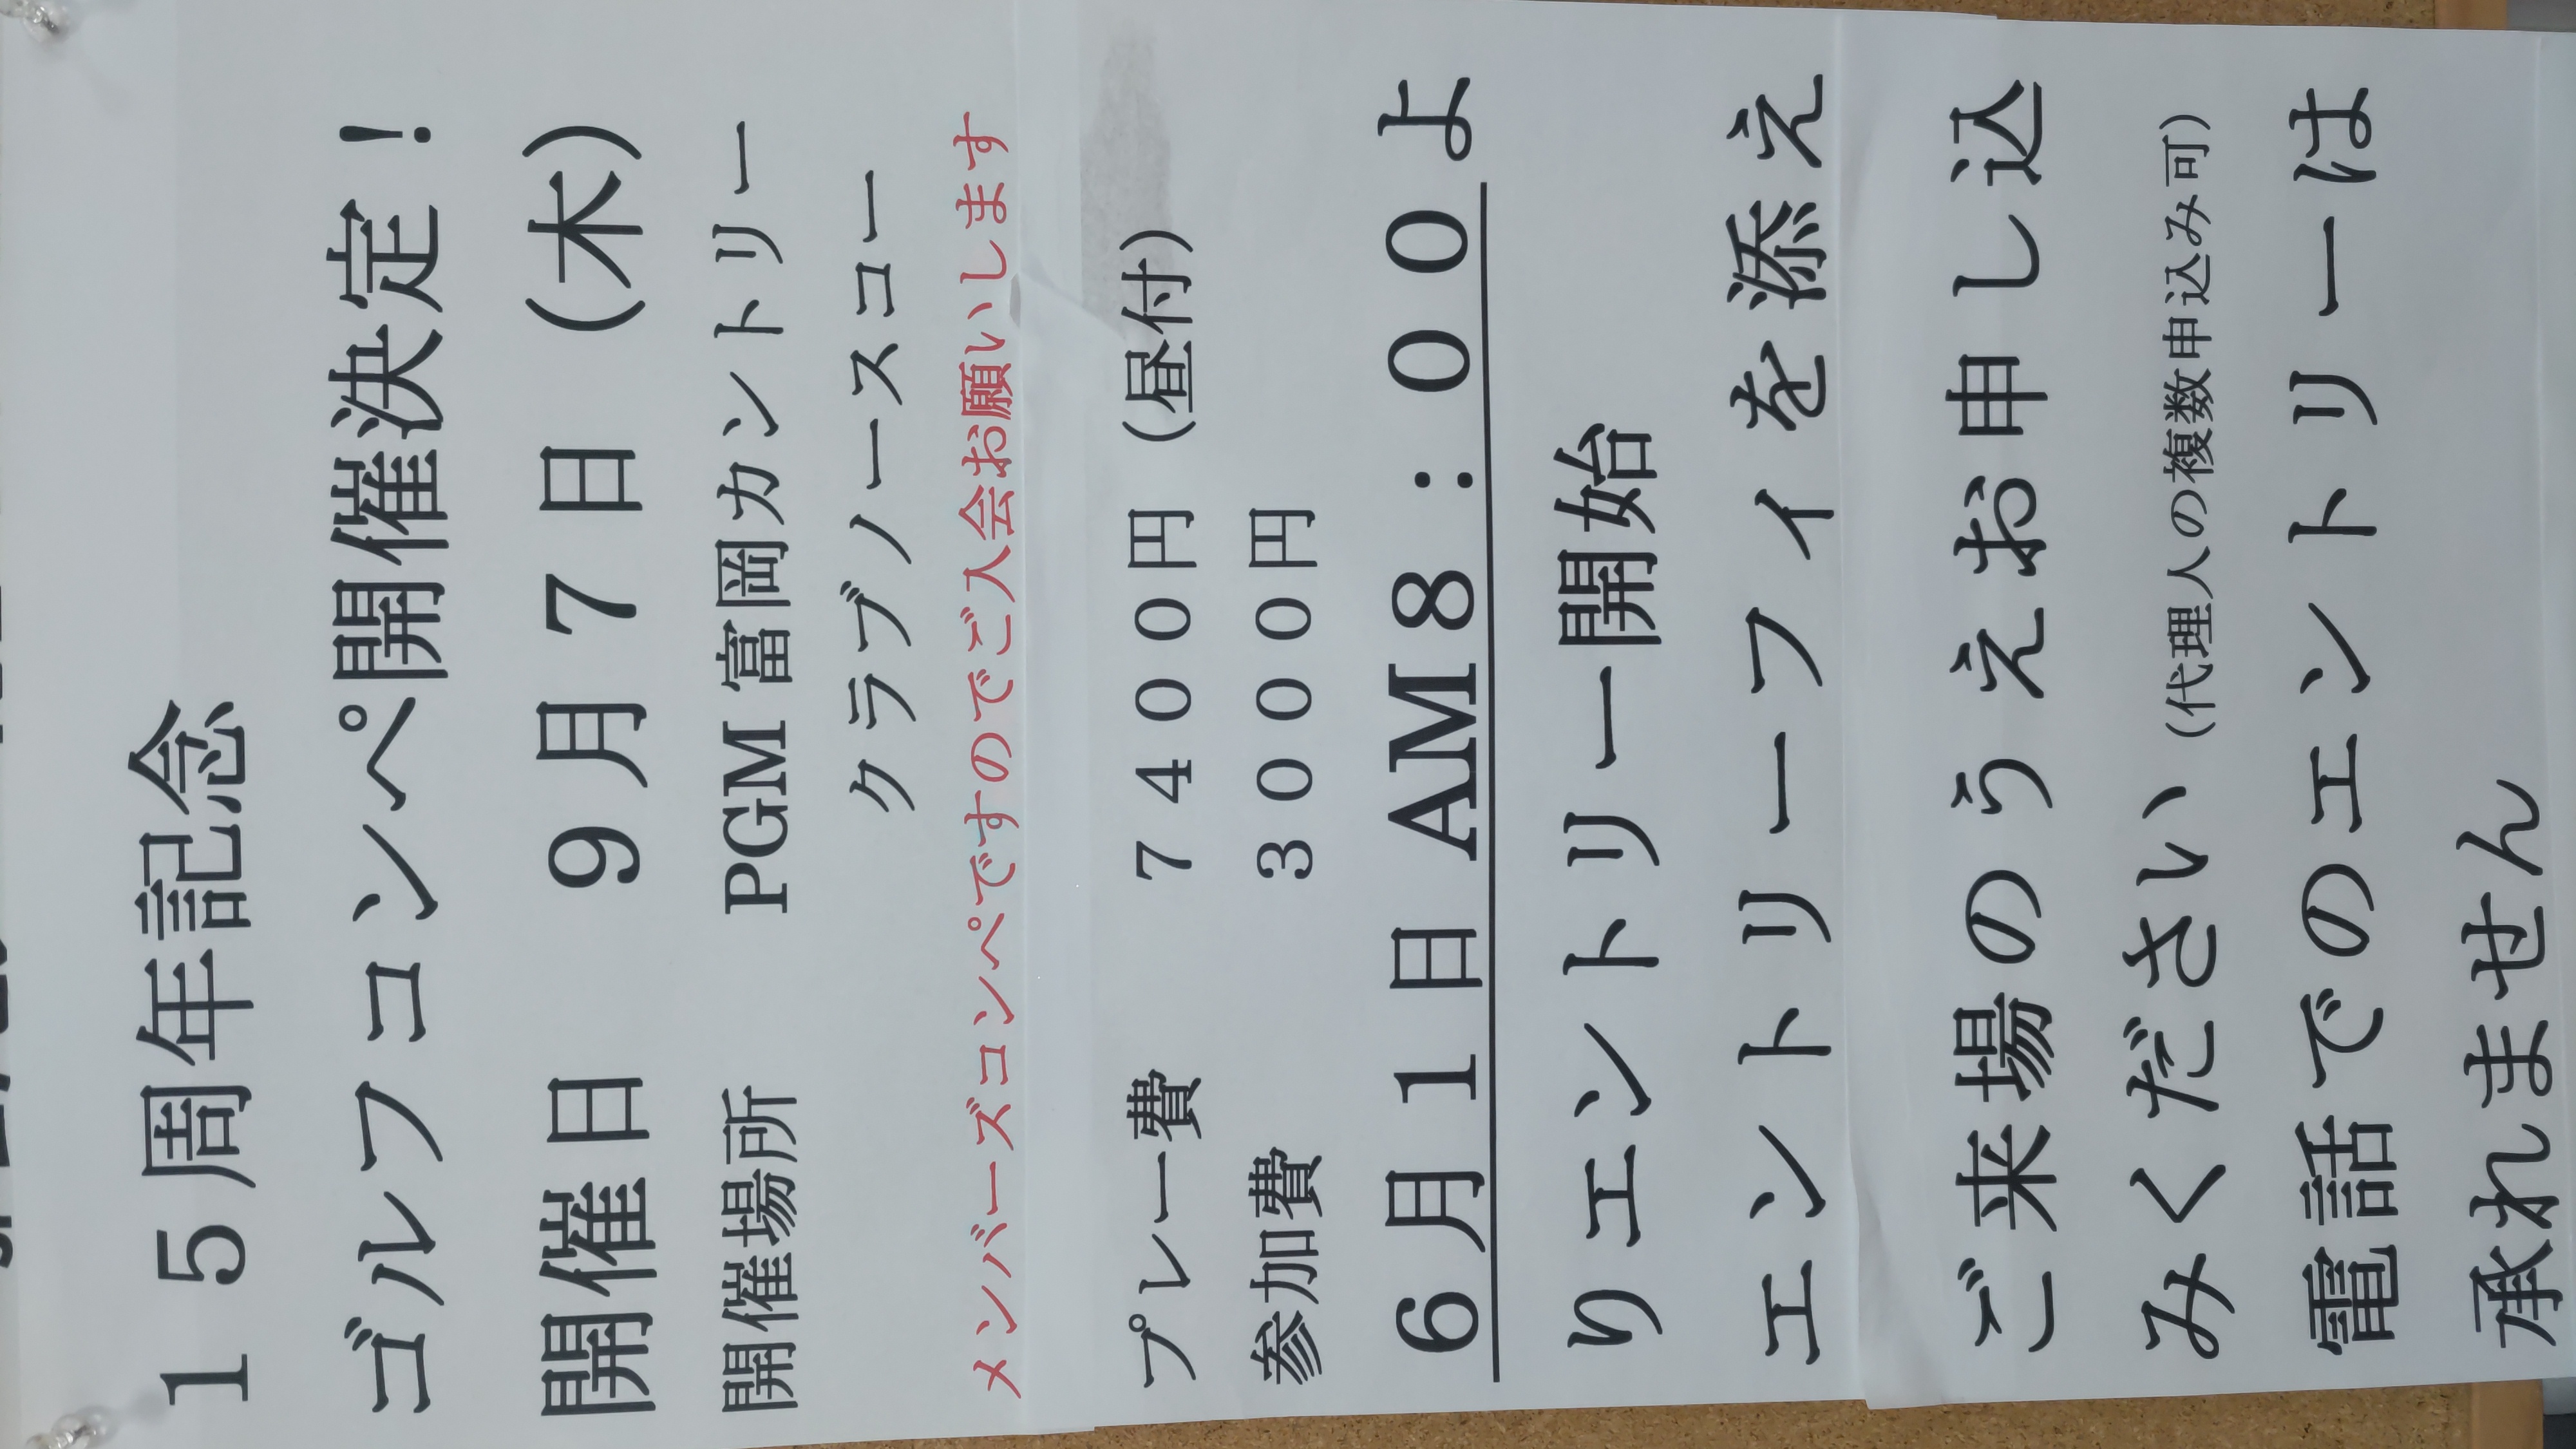 １５周年記念
ゴルフコンペ開催決定！
開催日　９月７日（木）
開催場所　PGM 富岡カントリー
クラブノースコー
メンバーズコンペですのでご入会お願いします
プレー費　７４００円（昼付）
参加費　３０００円
６月１日 AM８：００よ
りエントリー開始
エントリーフィを添え
ご来場のうえお申し込
みください（代理人の複数申込み可）
電話でのエントリーは
承れません